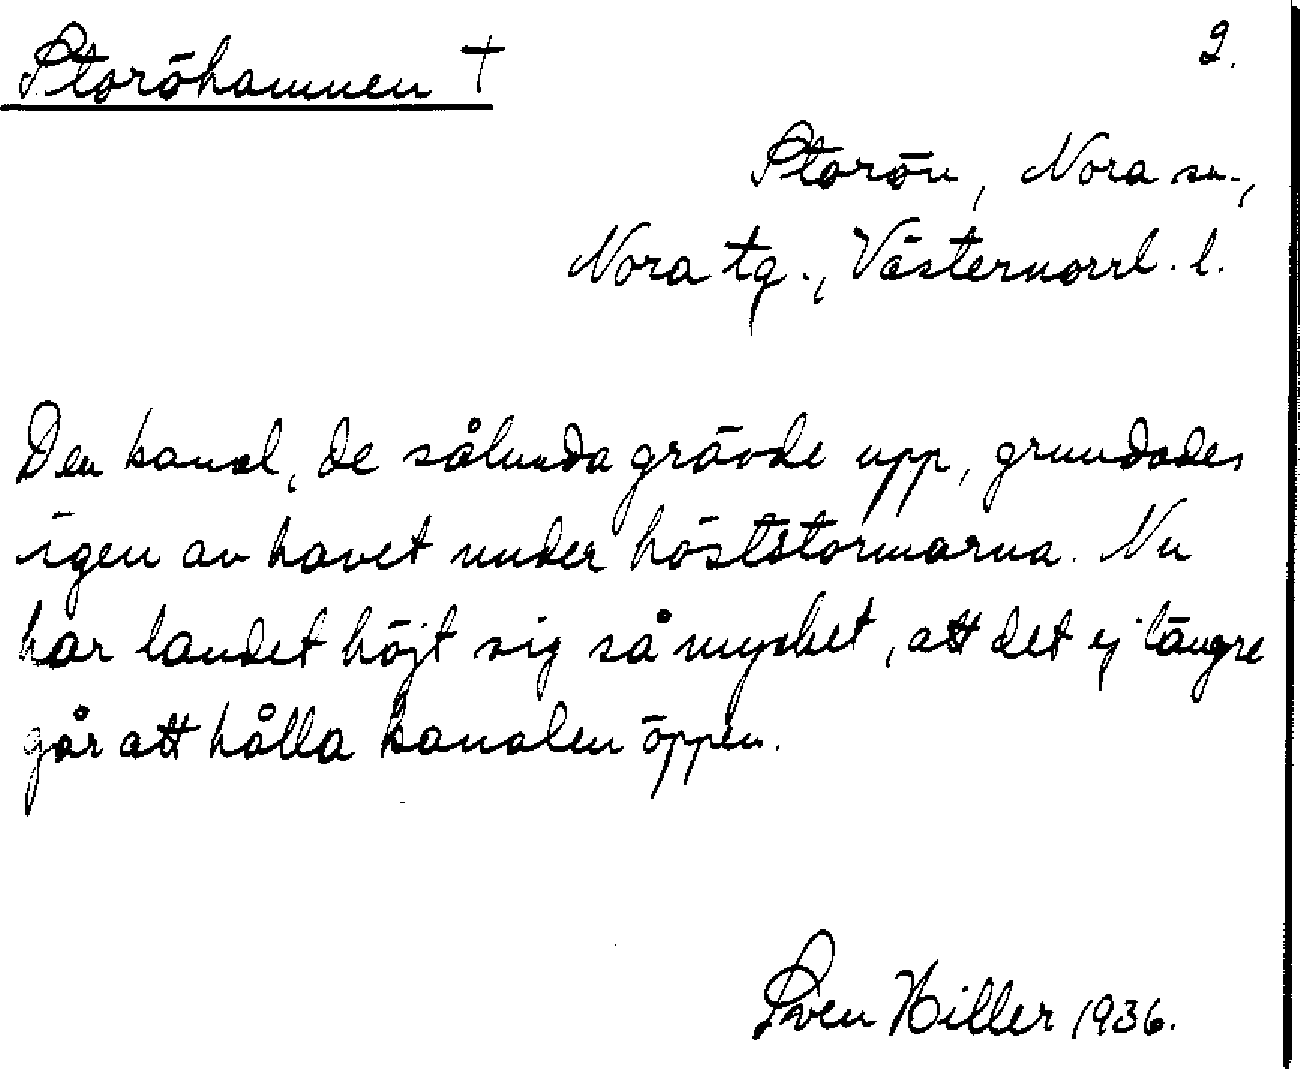 Storöhamnen †
2.
Storön, Nora sn.,
Nora tg., Västernorrl. l.
Den kanal, de sålunda grävde upp, grundades
igen av havet under höststormarna. Nu
har landet höjt sig så mycket, att det ej längre
går att hålla kanalen öppen.
Sven Hiller 1936.